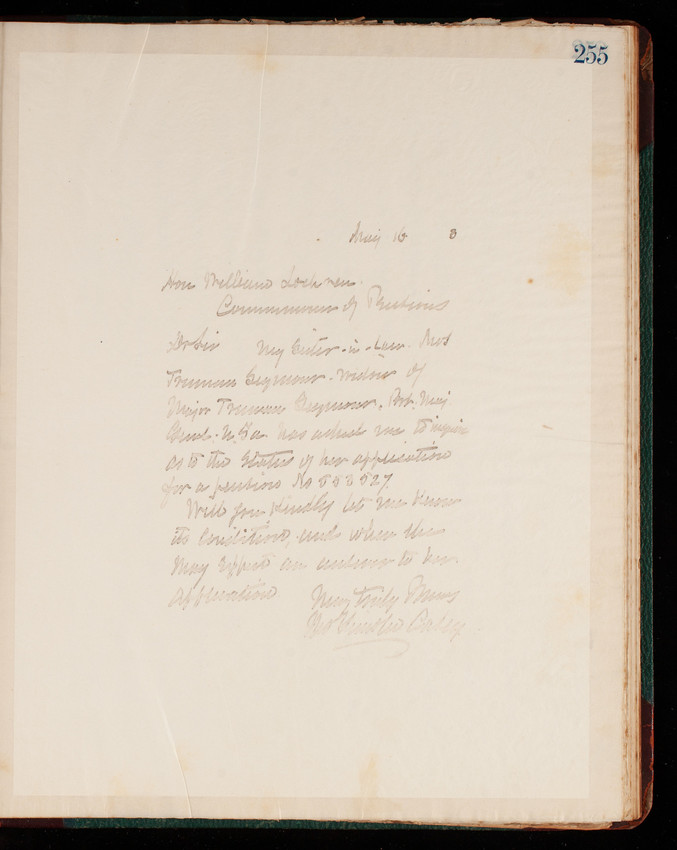 255
May 16 3
Hon William Lochren.
Commissioner of Pensions
Dr Sir My Sister-in-law. Mrs
Truman Seymour. Widow of
Major Truman Seymour, Bvt. Maj
Genl. U.S.A. has asked me to inquire
as to the Status of her application
for a pension No 583527.
Will you kindly let me know
its Condition, and when she
may expect an answer to her
application
Very truly Yours
Thos Lincoln Casey